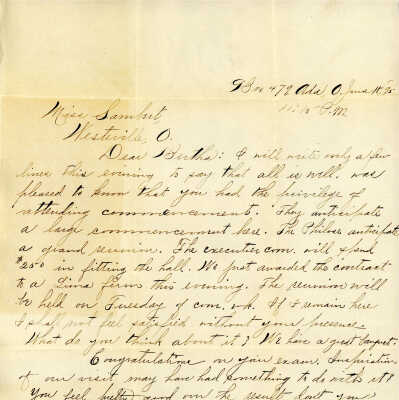 Box 472 Ada, O. June 18, '95
P.M.
Miss Lambert
Westville, O.
Dear Bertha: I will write only a few
lines this evening to say that all is well. was
pleased to know that you had the privilege of
attending commencement. They anticipate
a large commencement here. The Philos anticipate
a grand reunion. The executive com. will spend
$250 in fitting the hall. We just awarded the contract
to a Lima firm this evening. The reunion will
be held on Tuesday of com. wk. If I remain here
I shall not feel satisfied without your presence.
What do you think about it? We have a great banquet.
Congratulations on your exam. Inspiration
of our visit may have had something to do with it?
You feel better good over the result don't you